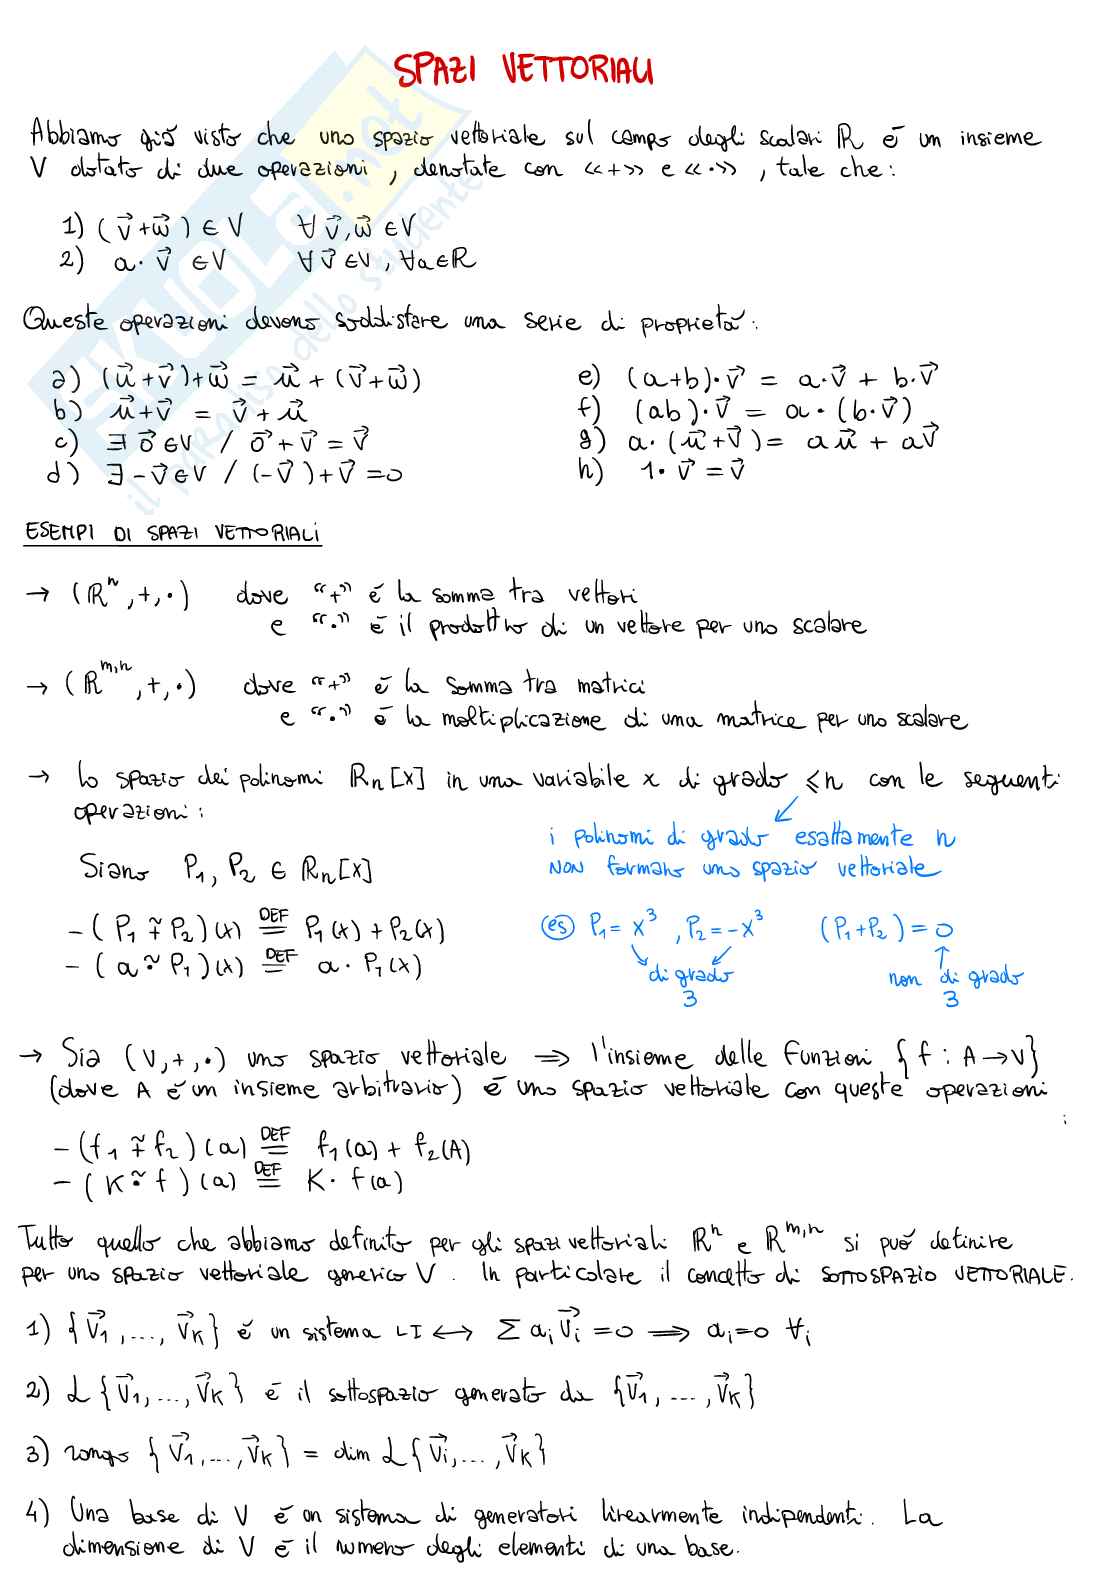 SPAZI VETTORIALI
Abbiamo già visto che uno spazio vettoriale sul campo degli scalari ℝ è un insieme
V dotato di due operazioni, denotate con «+» e «·», tale che:
1) (v⃗+w⃗) ∈ V ∀ v⃗,w⃗ ∈ V
2) a·v⃗ ∈ V ∀ v⃗ ∈ V, ∀a∈ℝ
Queste operazioni devono soddisfare una serie di proprietà:
a) (u⃗+v⃗)+w⃗ = u⃗+(v⃗+w⃗)
b) u⃗+v⃗ = v⃗+u⃗
c) ∃ 0⃗ ∈ V / 0⃗+v⃗ = v⃗
d) ∃ -v⃗ ∈ V / (-v⃗)+v⃗ = 0
e) (a+b)·v⃗ = a·v⃗ + b·v⃗
f) (ab)·v⃗ = a·(b·v⃗)
g) a·(u⃗+v⃗) = au⃗ + av⃗
h) 1·v⃗ = v⃗
ESEMPI DI SPAZI VETTORIALI
→ (ℝⁿ,+,·) dove "+" è la somma tra vettori
e "·" è il prodotto di un vettore per uno scalare
→ (ℝ^{m,n},+,·) dove "+" è la somma tra matrici
e "·" è la moltiplicazione di una matrice per uno scalare
→ Lo spazio dei polinomi ℝn[x] in una variabile x di grado ≤n con le seguenti
operazioni:
i polinomi di grado esattamente n
NON formano uno spazio vettoriale
Siano P₁, P₂ ∈ ℝn[x]
- (P₁ +̃ P₂)(x) DEF= P₁(x) + P₂(x)
- (a ·̃ P₁)(x) DEF= a·P₁(x)
es P₁ = x³, P₂ = -x³ (P₁+P₂) = 0
di grado 3
non di grado 3
→ Sia (V,+,·) uno spazio vettoriale ⇒ l'insieme delle funzioni {f : A→V}
(dove A è un insieme arbitrario) è uno spazio vettoriale con queste operazioni
:
- (f₁ +̃ f₂)(a) DEF= f₁(a) + f₂(A)
- (K ·̃ f)(a) DEF= K·f(a)
Tutto quello che abbiamo definito per gli spazi vettoriali ℝⁿ e ℝ^{m,n} si può definire
per uno spazio vettoriale generico V. In particolare il concetto di SOTTOSPAZIO VETTORIALE.
1) {v⃗₁,...,v⃗K} è un sistema LI ↔ Σ aᵢv⃗ᵢ = 0 ⇒ aᵢ=0 ∀i
2) L{v⃗₁,...,v⃗K} è il sottospazio generato da {v⃗₁,...,v⃗K}
3) rango {v⃗₁,...,v⃗K} = dim L{v⃗i,...,v⃗K}
4) Una base di V è un sistema di generatori linearmente indipendenti. La
dimensione di V è il numero degli elementi di una base.
SKUOLA.net
il paradiso dello studente